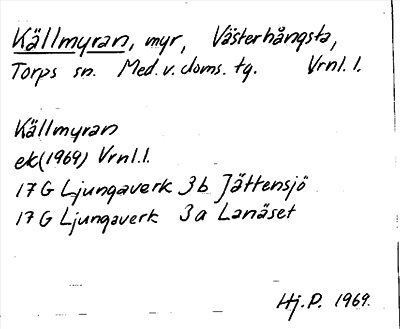 Källmyran, myr, Västerhångsta,
Torps sn. Med. v. doms. tg. Vrnl. l.
Källmyran
ek(1969) Vrnl. l.
17 G Ljungaverk 3b Jättensjö
17 G Ljungaverk 3a Lanäset
Hj. P. 1969.